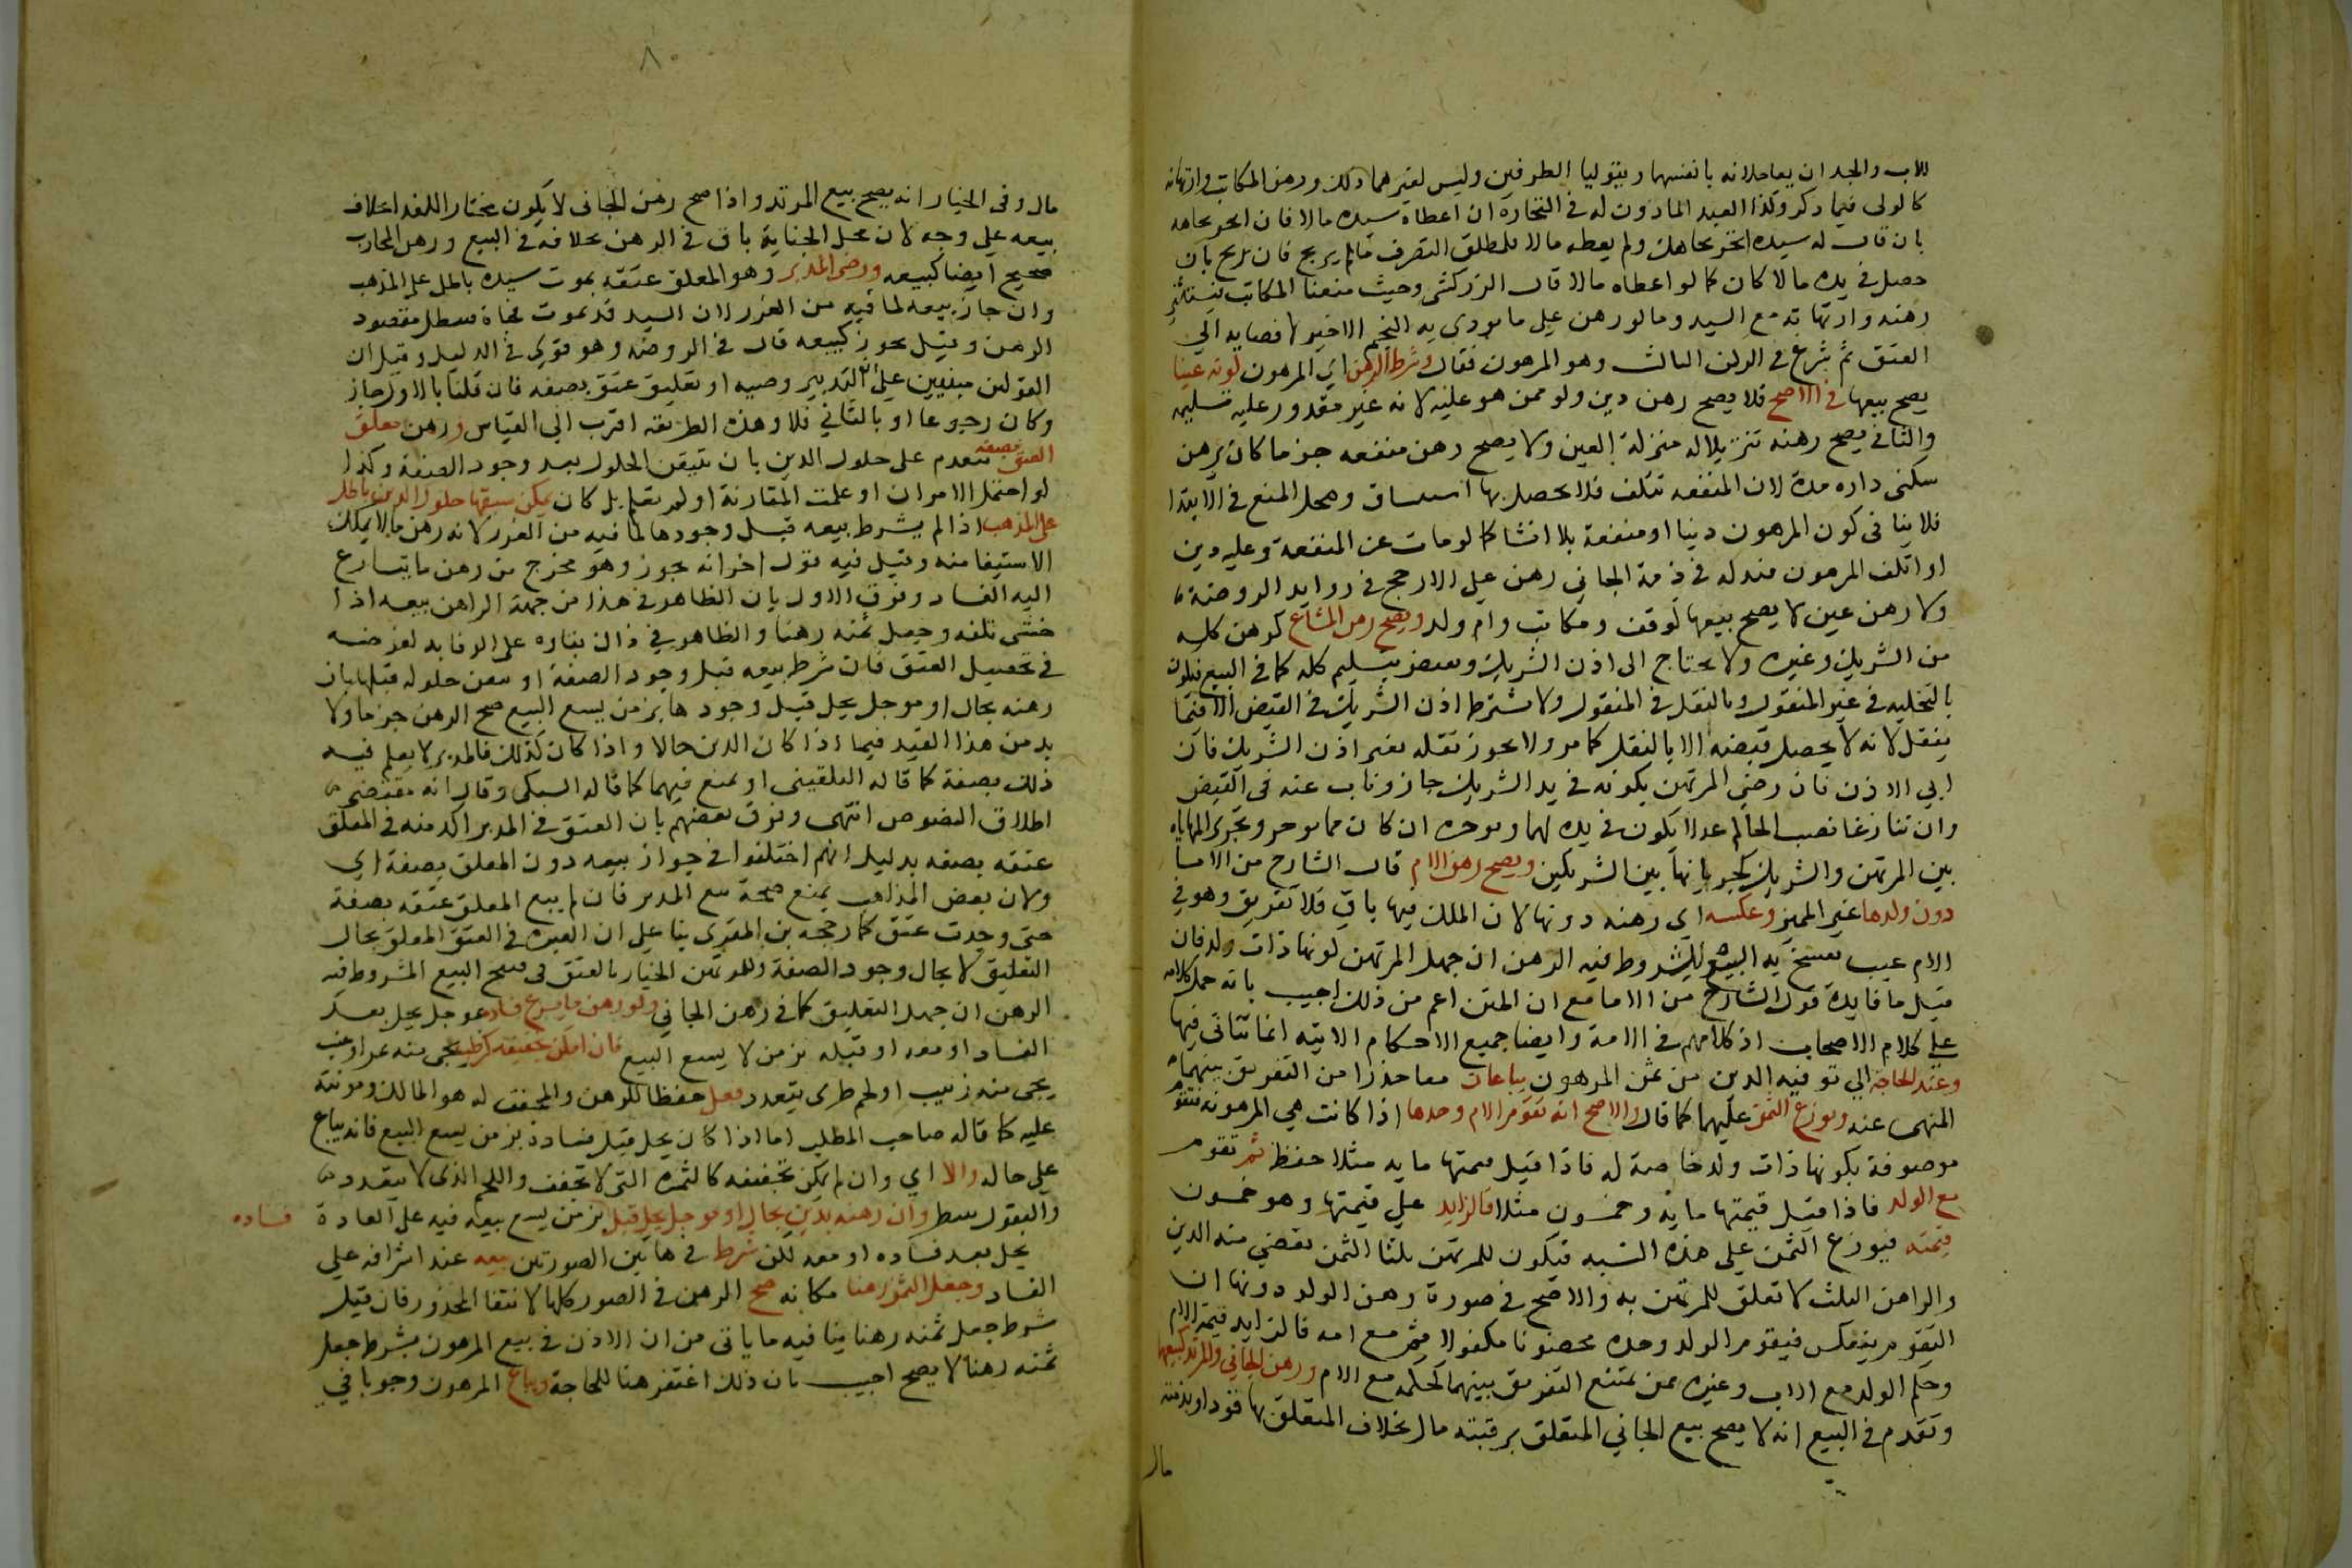 للاب والجد ان يعاملانه بانفسهما ويتوليا الطرفين وليس لغيرهما ذلك ورهن المكاتب وارتهانه
كالولى فيما ذكر وكذا العبد الماذون له فى التجارة ان اعطاه سيده مالا فان اتجر بجاهه
بان قال له سيده اتجر بجاهك ولم يعطه مالا فلمطلق التصرف مالم يربح فان ربح بان
حصل فى يده مالا كان كما لو اعطاه مالا قال الزركشى وحيث منعنا المكاتب يستثنى
رهنه وارتهانه مع السيد وما لو رهن على ما يودى به النجم الاخير لافضايه الي
العتق ثم شرع فى الركن الثالث وهو المرهون فقال وشرط الرهن اي المرهون كونه عينا
يصح بيعها فى الاصح فلا يصح رهن دين ولو ممن هو عليه لانه غير مقدور عليه تسليمه
والثانى يصح رهنه تنزيلا له منزلة العين ولا يصح رهن منفعه جزما كان يرهن
سكنى داره مدة لان المنفعه تتلف فلا يحصل بها استيثاق ومحل المنع فى الابتدا
فلا ينافى كون المرهون دينا او منفعة بلا انشا كما لو مات عن المنفعة وعليه دين
او اتلف المرهون فبدله فى ذمة الجانى رهن على الارجح فى زوايد الروضة
ولا رهن عين لا يصح بيعها كوقف ومكاتب وام ولد ويصح رهن المشاع كرهن كله
من الشريك وغيره ولا يحتاج الى اذن الشريك ويقبض بتسليم كله كما فى البيع فيكون
بالتخليه فى غير المنقول وبالنقل فى المنقول ولا يشترط اذن الشريك فى القبض الا فيما
ينقل لانه لا يحصل قبضه الا بالنقل كما مر ولا يجوز نقله بغير اذن الشريك فان
ابى الاذن فان رضى المرتهن بكونه فى يد الشريك جاز وناب عنه فى القبض
وان تنازعا نصب الحاكم عدلا يكون فى يده لهما ويوجره ان كان مما يوجر وتجرى المهاياه
بين المرتهن والشريك كجريانها بين الشريكين ويصح رهن الام قال الشارح من الاما
دون ولدها غير المميز وعكسه اي رهنه دونها لان الملك فيها باق فلا تفريق وهو فى
الام عيب يفسخ به البيع المشروط فيه الرهن ان جهل المرتهن كونها ذات ولد فان
قيل ما فايدة قول الشارح من الاما مع ان المتن اعم من ذلك اجيب بانه حمل كلامه
على كلام الاصحاب اذ كلامهم فى الامة وايضا جميع الاحكام الاتيه انما تتاتى فيها
وعند الحاجه الي توفيه الدين من ثمن المرهون يباعان معا حذرا من التفريق بينهما
المنهى عنه ويوزع الثمن عليهما كما قال والاصح انه تقوم الام وحدها اذا كانت هى المرهونه فتقوم
موصوفة بكونها ذات ولد خاصة له فاذا قيل قيمتها مايه مثلا حفظ ثم تقوم
مع الولد فاذا قيل قيمتها ماية وخمسون مثلا فالزايد على قيمتها وهو خمسون
قيمته فيوزع الثمن على هذه النسبه فيكون للمرتهن ثلثا الثمن يقضى منه الدين
وللراهن الثلث لا تعلق للمرتهن به والاصح فى صورة رهن الولد دونها ان
التقويم ينعكس فيقوم الولد وحده محضونا مكفولا ثم مع امه فالزايد قيمة الام
وحكم الولد مع الاب وغيره ممن يمتنع التفريق بينهما كحكمه مع الام ورهن الجانى والمرتد كبيعهما
وتقدم فى البيع انه لا يصح بيع الجاني المتعلق برقبته مال بخلاف المتعلق بها قود او بذمته
مال
٨٠
مال وفى الخيار انه يصح بيع المرتد واذا صح رهن الجانى لا يكون مختارا للفدا بخلاف
بيعه على وجه لان محل الجناية باق فى الرهن بخلافه فى البيع ورهن المحارب
صحيح ايضا كبيعه ورهن المدبر وهو المعلق عتقه بموت سيده باطل على المذهب
وان جاز بيعه لما فيه من الغرر لان السيد قد يموت فجاة فيبطل مقصود
الرهن وقيل يجوز كبيعه قال فى الروضه وهو قوى فى الدليل وقيل ان
القولين مبنيين على ان التدبير وصيه او تعليق عتق بصفه فان قلنا بالاول جاز
وكان رجوعا او بالثاني فلا وهذه الطريقه اقرب الى القياس ورهن معلق
العتق بصفه تتقدم على حلول الدين بان تيقن الحلول بعد وجود الصفة وكذا
لو احتمل الامران او علمت المقارنة او لم تعلم بل كان يمكن سبقها حلول الدين باطل
على المذهب اذا لم يشرط بيعه قبل وجودها لما فيه من الغرر لانه رهن ما لا يمكن
الاستيفا منه وقيل فيه قول اخر انه يجوز وهو مخرج من رهن ما يتسارع
اليه الفساد وفرق الاول بان الظاهر فى هذا من جهة الراهن بيعه اذا
خشى تلفه وجعل ثمنه رهنا والظاهر فى ذاك بقاوه على الوفا به لغرضه
فى تحصيل العتق فان شرط بيعه قبل وجود الصفة او تيقن حلوله قبلها بان
رهنه بحال او موجل يحل قبل وجودها بزمن يسع البيع صح الرهن جزما ولا
بد من هذا القيد فيما اذا كان الدين حالا واذا كان كذلك فالمدبر لا يعلم فيه
ذلك بصفة كما قاله البلقينى او يمنع فيهما كما قاله السبكى وقال انه مقتضى
اطلاق النصوص انتهى وفرق بعضهم بان العتق فى المدبر اكد منه فى المعلق
عتقه بصفه بدليل انهم اختلفوا فى جواز بيعه دون المعلق بصفة اى
ولان بعض المذاهب يمنع صحة بيع المدبر فان لم يبع المعلق عتقه بصفة
حتى وجدت عتق كما رجحه بن المقرى بنا على ان العبره فى العتق المعلق بحال
التعليق لا بحال وجود الصفة وللمرتهن الخيار بالعتق فى فسخ البيع المشروط فيه
الرهن ان جهل التعليق كما فى رهن الجاني ولو رهن ما يسرع فساده بموجل يحل بعد
الفساد او معه او قبله بزمن لا يسع البيع فان امكن تجفيفه كرطب يجى منه تمر او عنب
يجى منه زبيب او لحم طرى يتقدد فعل حفظا للرهن والمجفف له هو المالك ومونته
عليه كما قاله صاحب المطلب اما اذا كان يحل قبل فساده بزمن يسع البيع فانه يباع
على حاله والا اي وان لم يكن تجفيفه كالثمره التى لا تجفف واللحم الذى لا يتقدد
والبقول نظر وان رهنه بدين بحال او موجل يحل قبل بزمن يسع بيعه فيه على العادة فساده
يحل بعد فساده او معه لكن شرط فى هاتين الصورتين بيعه عند اشرافه على
الفساد وجعل الثمن رهنا مكانه صح الرهن فى الصور كلها لانتفا المحذور فان قيل
شرط جعل ثمنه رهنا ينافيه ما ياتى من ان الاذن فى بيع المرهون بشرط جعل
ثمنه رهنا لا يصح اجيب بان ذلك اغتفر هنا للحاجة ويباع المرهون وجوبا في